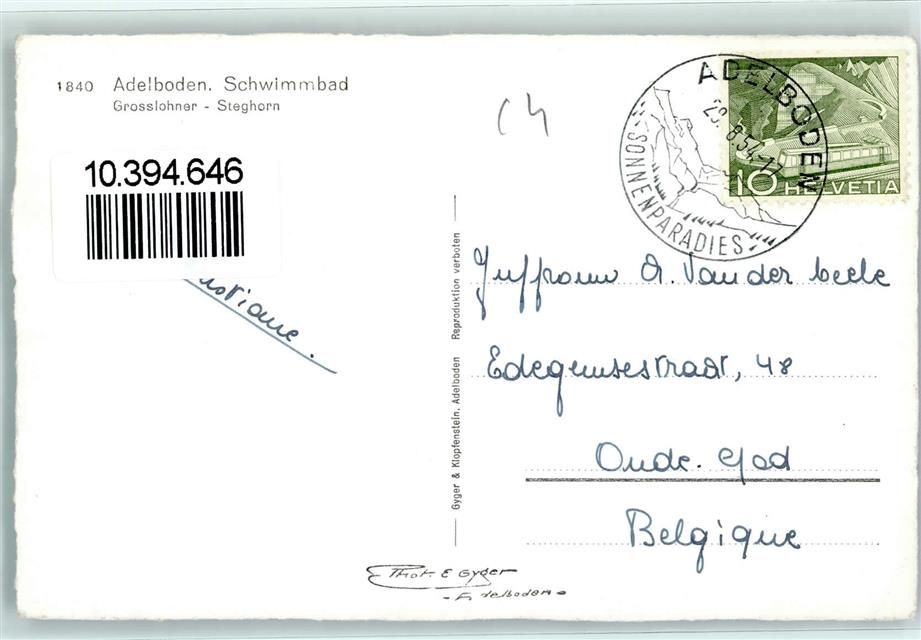 1840 Adelboden. Schwimmbad
Grosslohner - Steghorn
10.394.646
istiane.
Gyger & Klopfenstein, Adelboden Reproduktion verboten
ADELBODEN
28.8.54-17
SONNENPARADIES
10 HELVETIA
Juffrouw A. Van der beele
Edegemsestraat, 48
Oude. God
Belgique
Phot. E Gyger
- Adelboden -